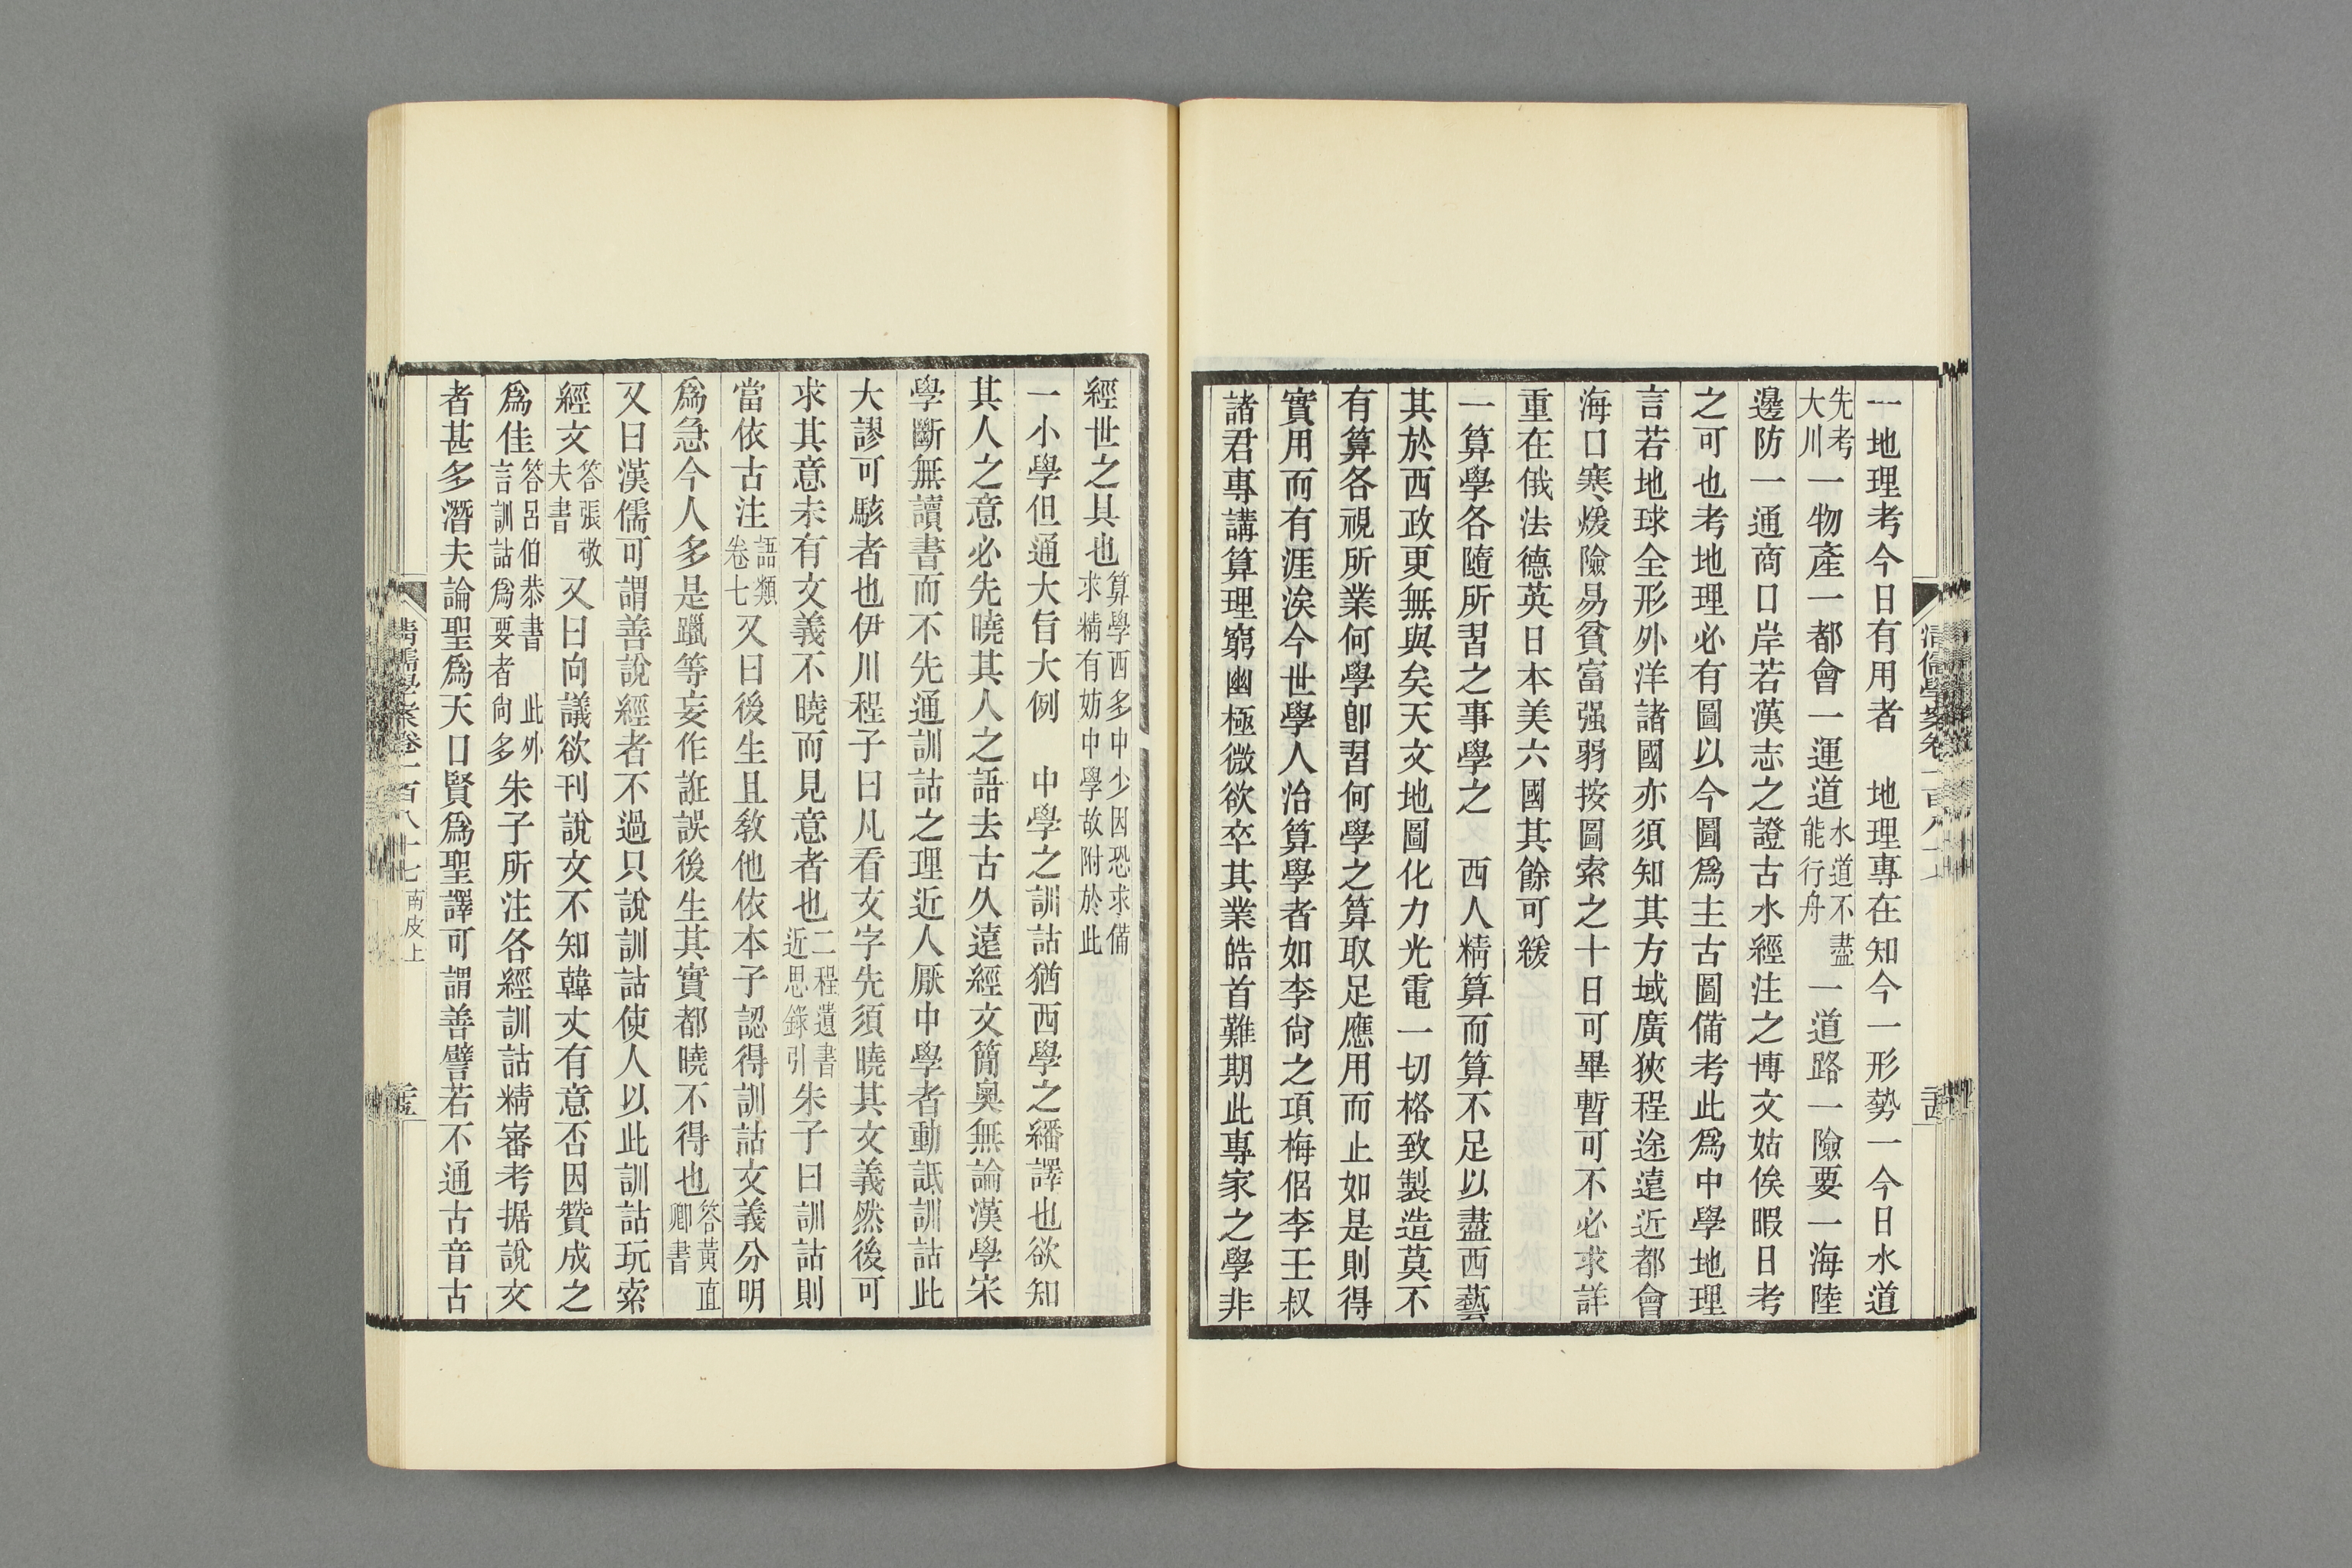 一地理考今日有用者　地理專在知今一形勢一今日水道
先考大川一物產一都會一運道水道不盡能行舟一道路一險要一海陸
邊防一通商口岸若漢志之證古水經注之博文姑俟暇日考
之可也考地理必有圖以今圖爲主古圖備考此爲中學地理
言若地球全形外洋諸國亦須知其方域廣狹程途遠近都會
海口寒煖險易貧富强弱按圖索之十日可畢暫可不必求詳
重在俄法德英日本美六國其餘可緩
一算學各隨所習之事學之　西人精算而算不足以盡西藝
其於西政更無與矣天文地圖化力光電一切格致製造莫不
有算各視所業何學卽習何學之算取足應用而止如是則得
實用而有涯涘今世學人治算學者如李尙之項梅侶李壬叔
諸君專講算理窮幽極微欲卒其業皓首難期此專家之學非
清儒學案卷一百八十七
經世之具也算學西多中少因恐求備求精有妨中學故附於此
一小學但通大旨大例　中學之訓詁猶西學之繙譯也欲知
其人之意必先曉其人之語去古久遠經文簡奧無論漢學宋
學斷無讀書而不先通訓詁之理近人厭中學者動詆訓詁此
大謬可駭者也伊川程子曰凡看文字先須曉其文義然後可
求其意未有文義不曉而見意者也二程遺書近思錄引朱子曰訓詁則
當依古注語類卷七又曰後生且教他依本子認得訓詁文義分明
爲急今人多是躐等妄作誑誤後生其實都曉不得也答黃直卿書
又曰漢儒可謂善說經者不過只說訓詁使人以此訓詁玩索
經文答張敬夫書又曰向議欲刊說文不知韓丈有意否因贊成之
爲佳答呂伯恭書　此外言訓詁爲要者尙多朱子所注各經訓詁精審考据說文
者甚多潛夫論聖爲天口賢爲聖譯可謂善譬若不通古音古
清儒學案卷一百八十七　南皮上